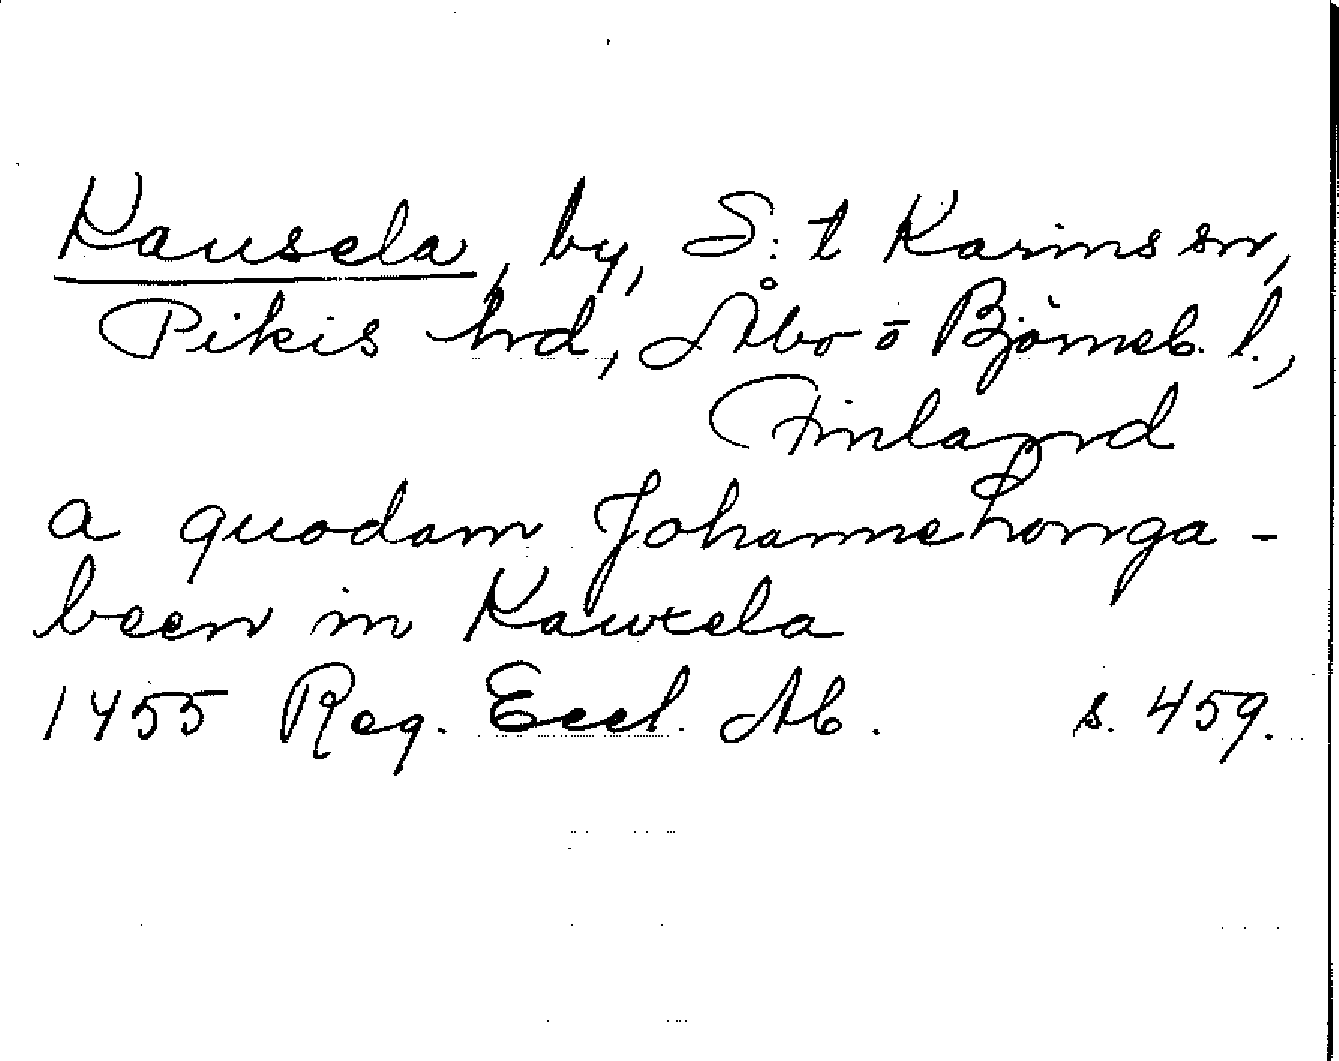 Kausela, by, S:t Karins sn,
Pikis hd, Åbo o Björneb. l.,
Finland
a quodam Johanne honga-
been in Kawxela
1455 Reg. Eccl. Ab. s. 459.